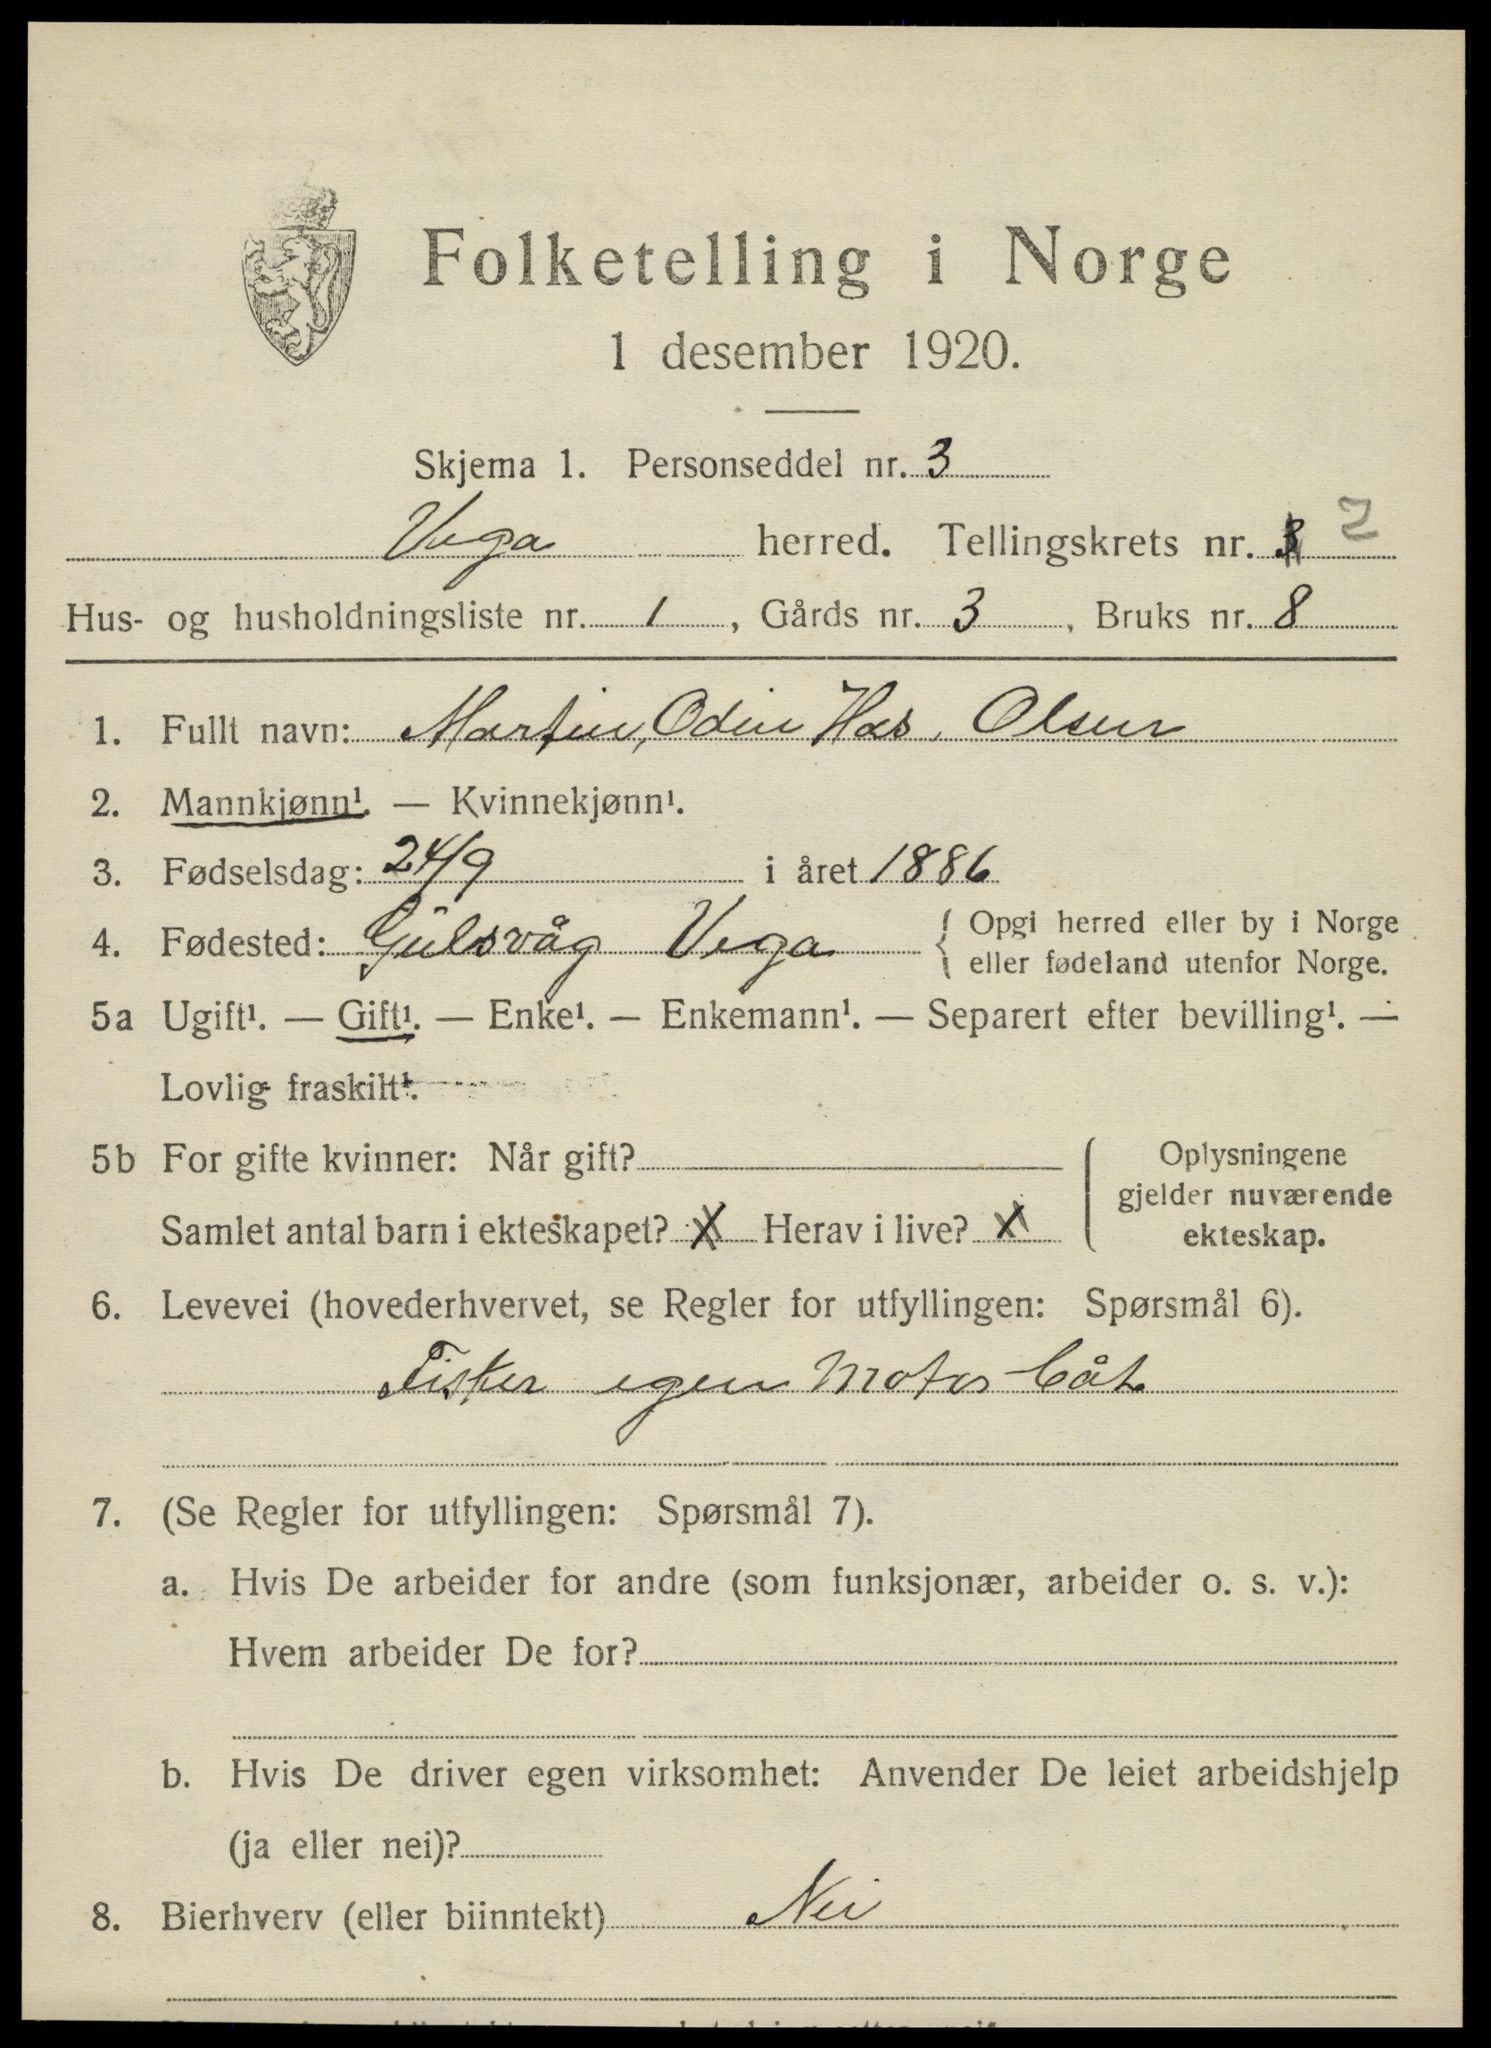 Folketelling i Norge
1 desember 1920.
Skjema 1. Personseddel nr. 3
Vega herred. Tellingskrets nr. 2
Hus- og husholdningsliste nr. 1, Gårds nr. 3, Bruks nr. 8
1. Fullt navn: Martin, Odin Has. Olsen
2. Mannkjønn¹. — Kvinnekjønn¹.
3. Fødselsdag: 24/9 i året 1886
4. Fødested: Gülsvåg Vega { Opgi herred eller by i Norge
eller fødeland utenfor Norge.
5a Ugift¹. — Gift¹. — Enke¹. — Enkemann¹. — Separert efter bevilling¹. —
Lovlig fraskilt¹.
5b For gifte kvinner: Når gift?
Samlet antal barn i ekteskapet? X Herav i live? X
Oplysningene
gjelder nuværende
ekteskap.
6. Levevei (hovederhvervet, se Regler for utfyllingen: Spørsmål 6).
Fisker egen Motor båt
7. (Se Regler for utfyllingen: Spørsmål 7).
a. Hvis De arbeider for andre (som funksjonær, arbeider o. s. v.):
Hvem arbeider De for?
b. Hvis De driver egen virksomhet: Anvender De leiet arbeidshjelp
(ja eller nei)?
8. Bierhverv (eller biinntekt) Nei